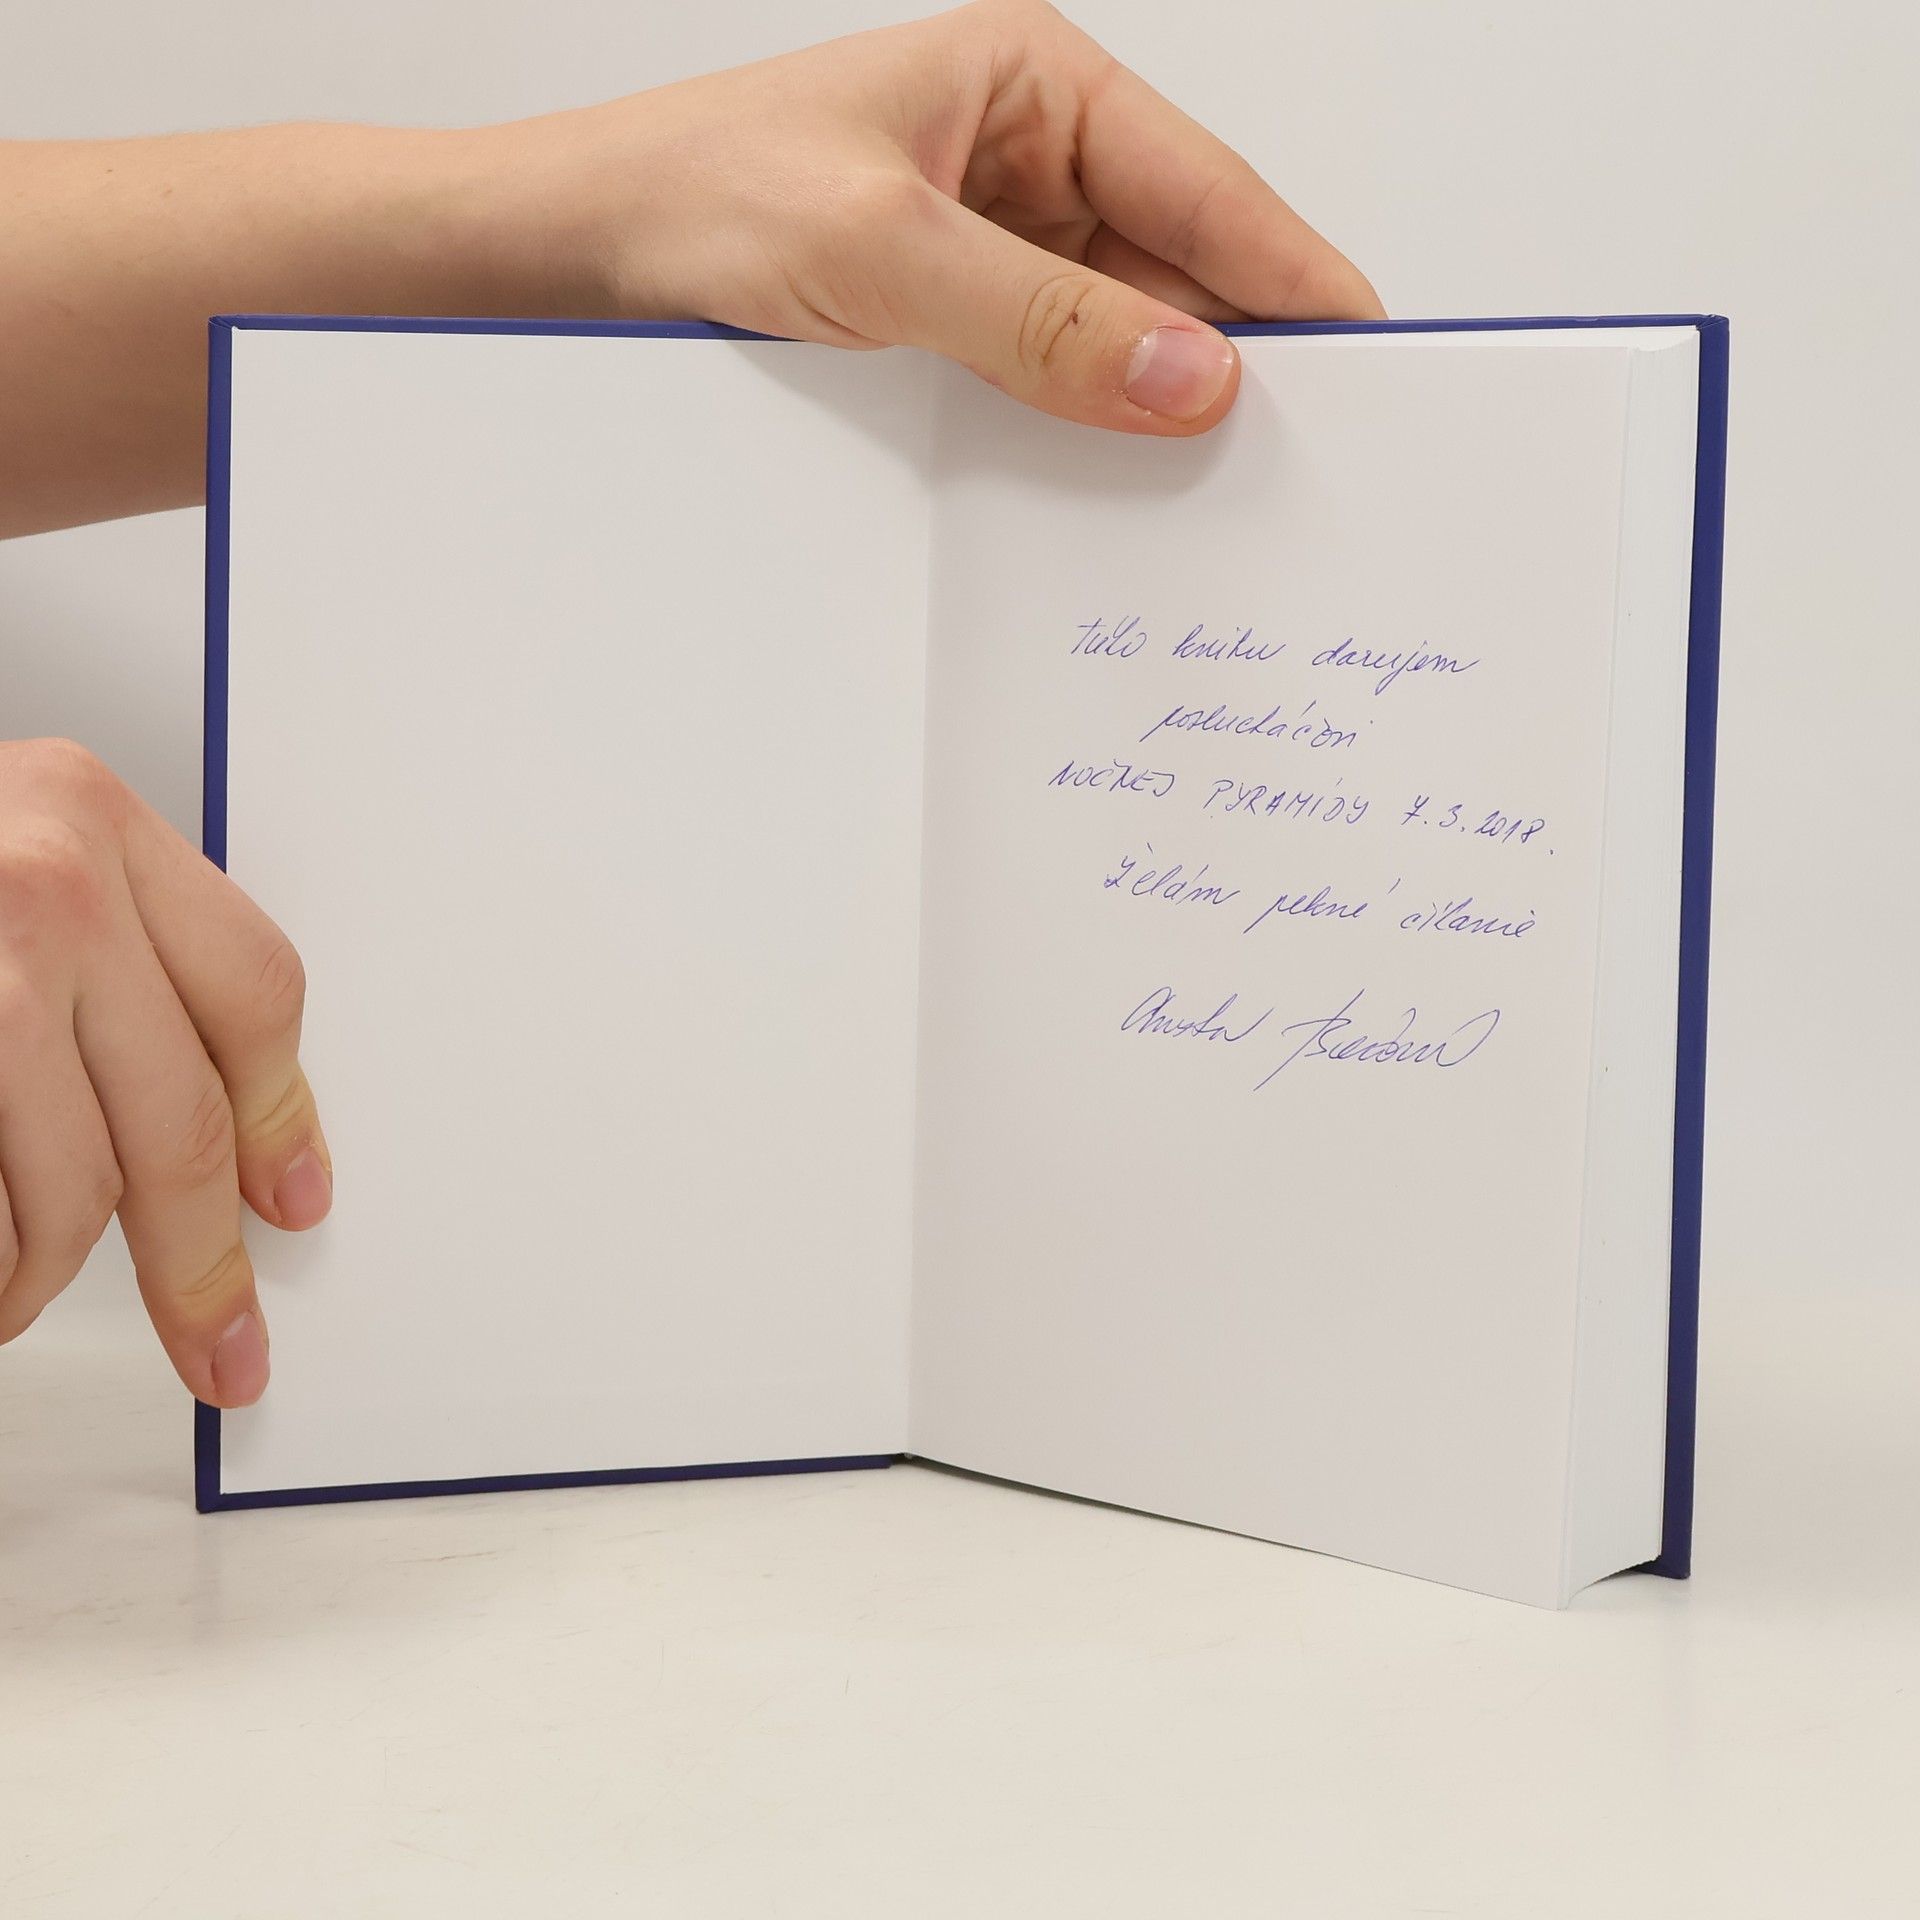 túto knihu darujem
poslucháčovi
NOČNEJ PYRAMÍDY 7.3.2018.
Želám pekné čítanie